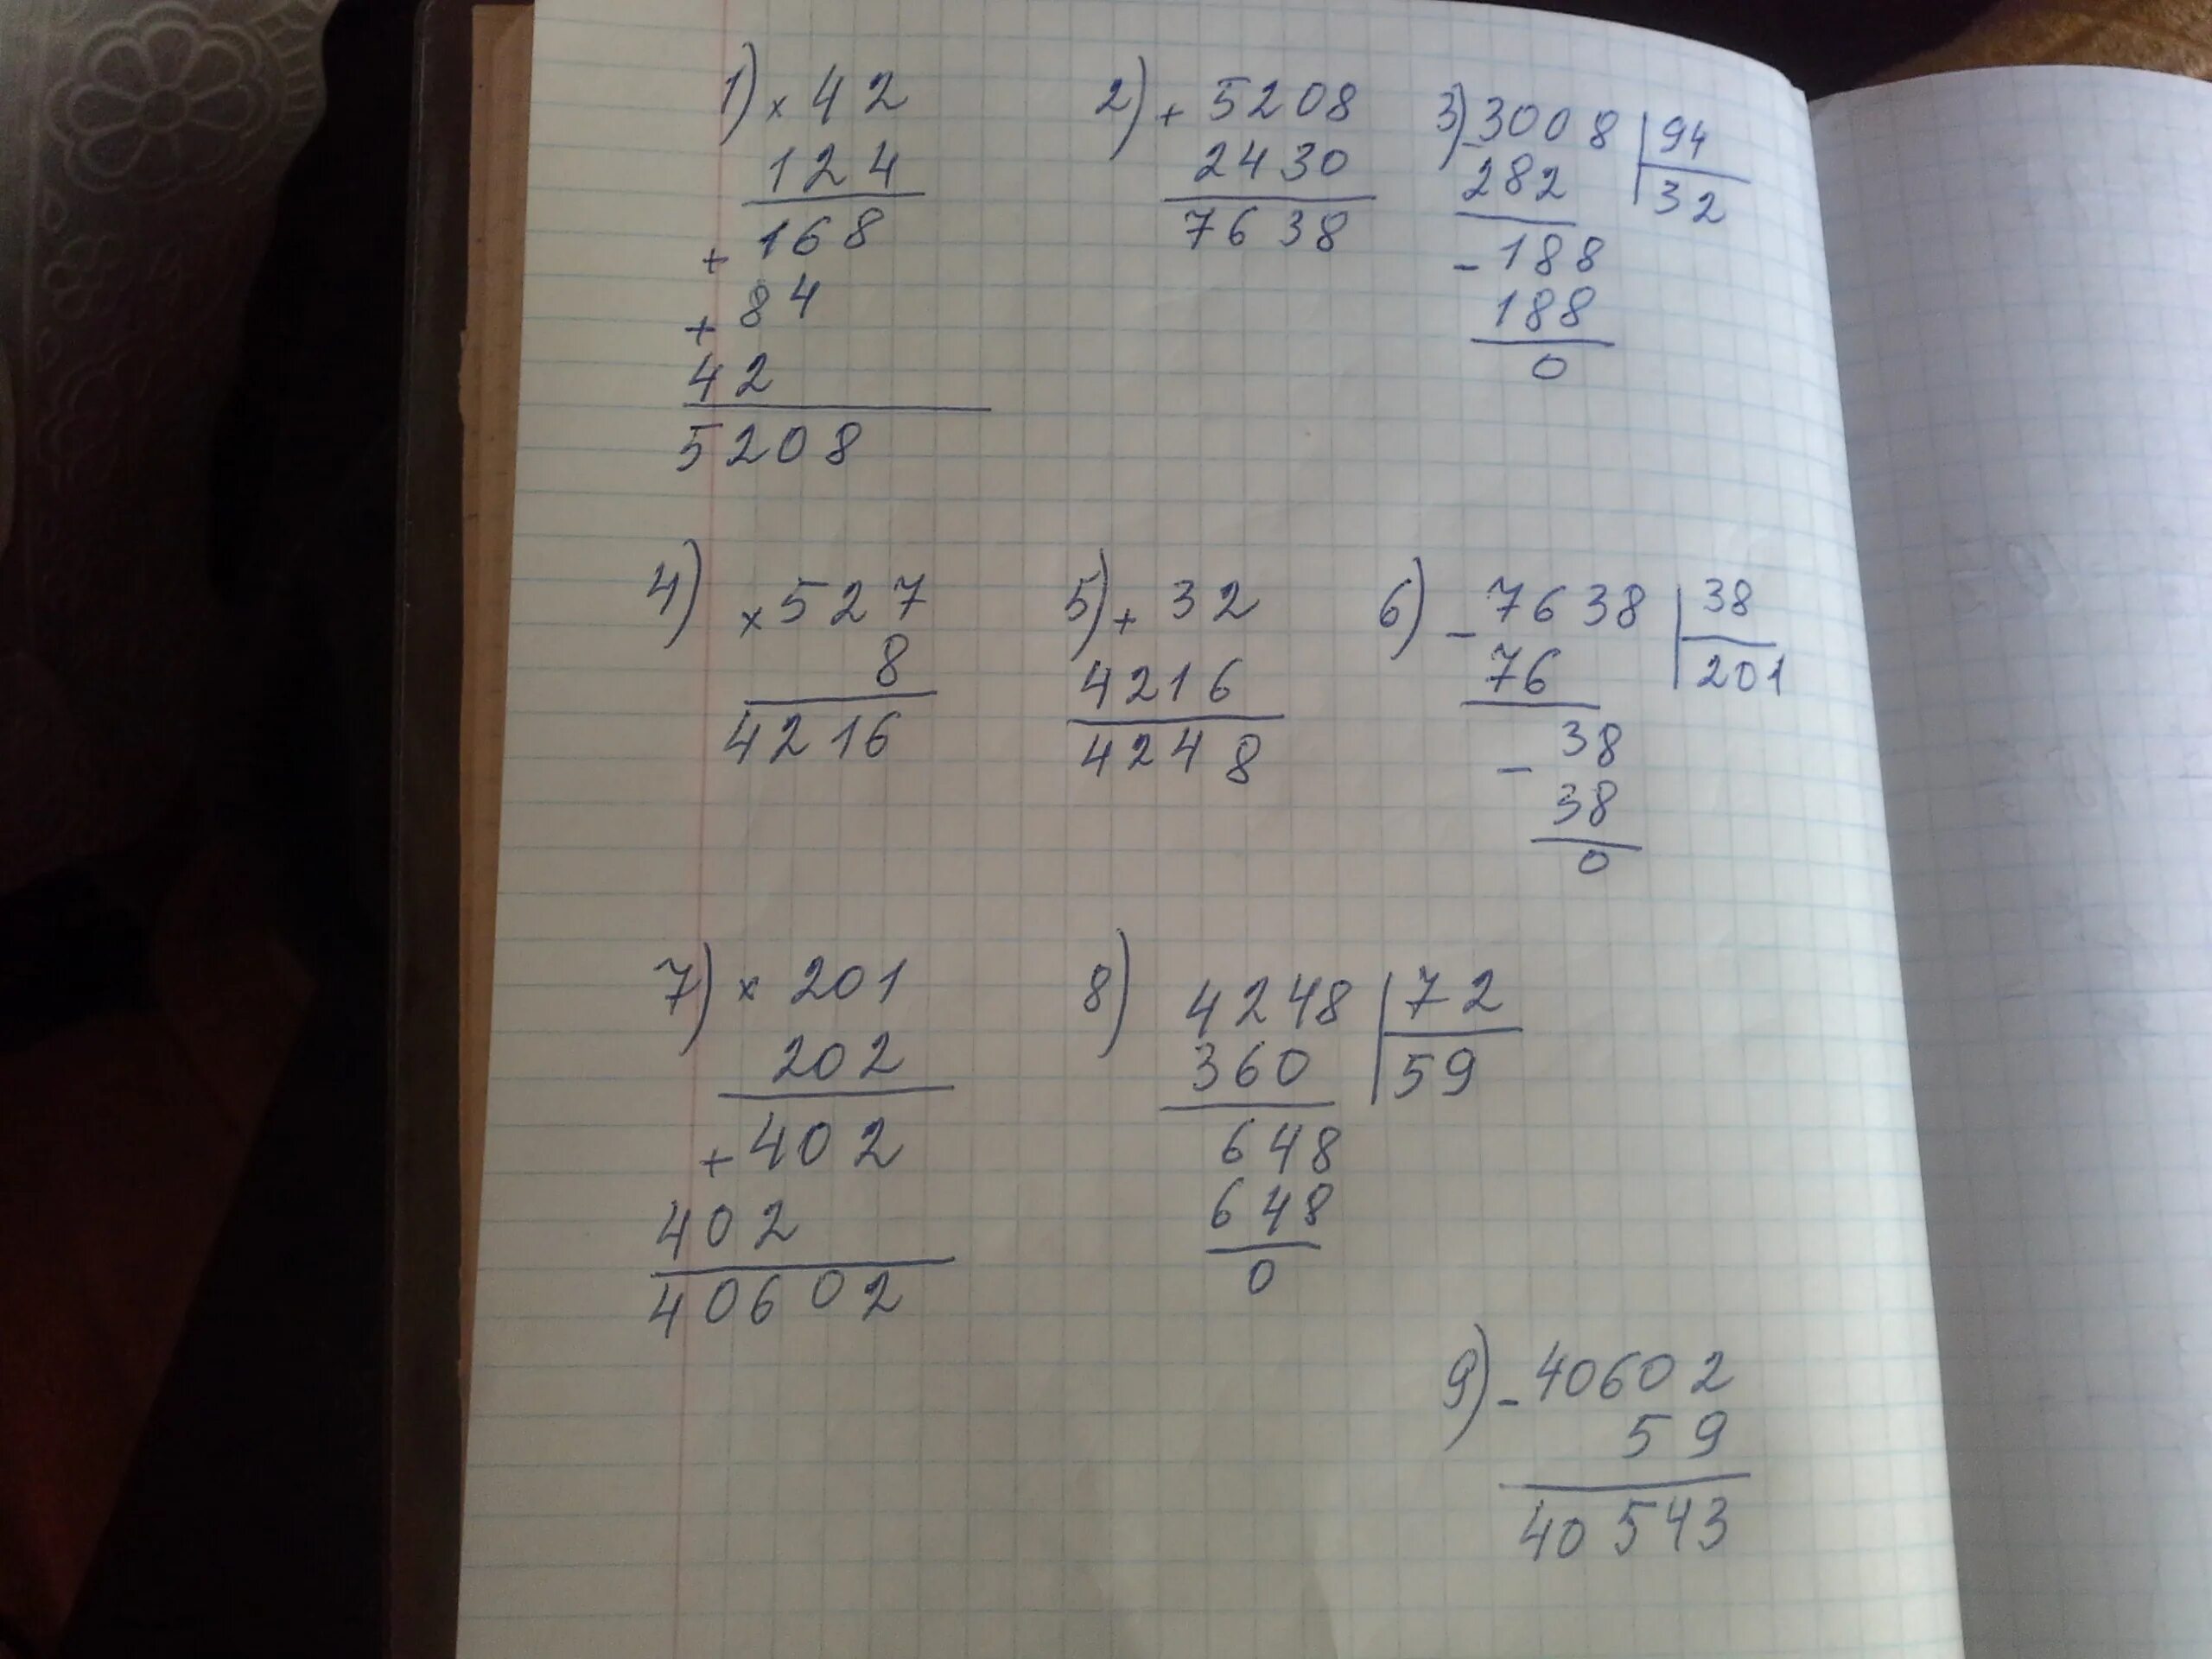 1) × 42
124
+ 168
+ 84
42
5208
2) + 5208
2430
7638
3) - 3008 | 94
282 | 32
- 188
188
0
4) × 527
8
4216
5) + 32
4216
4248
6) - 7638 | 38
76 | 201
- 38
38
0
7) × 201
202
+ 402
402
40602
8) 4248 | 72
360 | 59
648
648
0
9) - 40602
59
40543